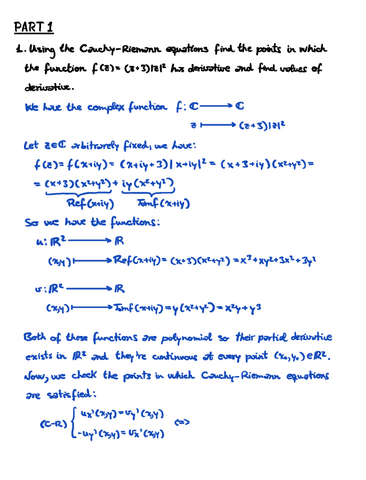 PART 1
1. Using the Cauchy-Riemann equations find the points in which
the function f(z) = (z+3)|z|² has derivative and find values of
derivative.
We have the complex function f: ℂ ⟶ ℂ
z ⟼ (z+3)|z|²
Let z∈ℂ arbitrarely fixed, we have:
f(z) = f(x+iy) = (x+iy+3)|x+iy|² = (x+3+iy)(x²+y²) =
= (x+3)(x²+y²) + iy(x²+y²)
Ref(x+iy) Imf(x+iy)
So we have the functions:
u: ℝ² ⟶ ℝ
(x,y) ⟼ Ref(x+iy) = (x+3)(x²+y²) = x³+xy²+3x²+3y²
v: ℝ² ⟶ ℝ
(x,y) ⟼ Imf(x+iy) = y(x²+y²) = x²y+y³
Both of these functions are polynomial so their partial derivative
exists in ℝ² and they're continuous at every point (x₀,y₀)∈ℝ².
Now, we check the points in which Cauchy-Riemann equations
are satisfied:
(C-R) { ux'(x,y) = vy'(x,y)
-uy'(x,y) = vx'(x,y) <=>